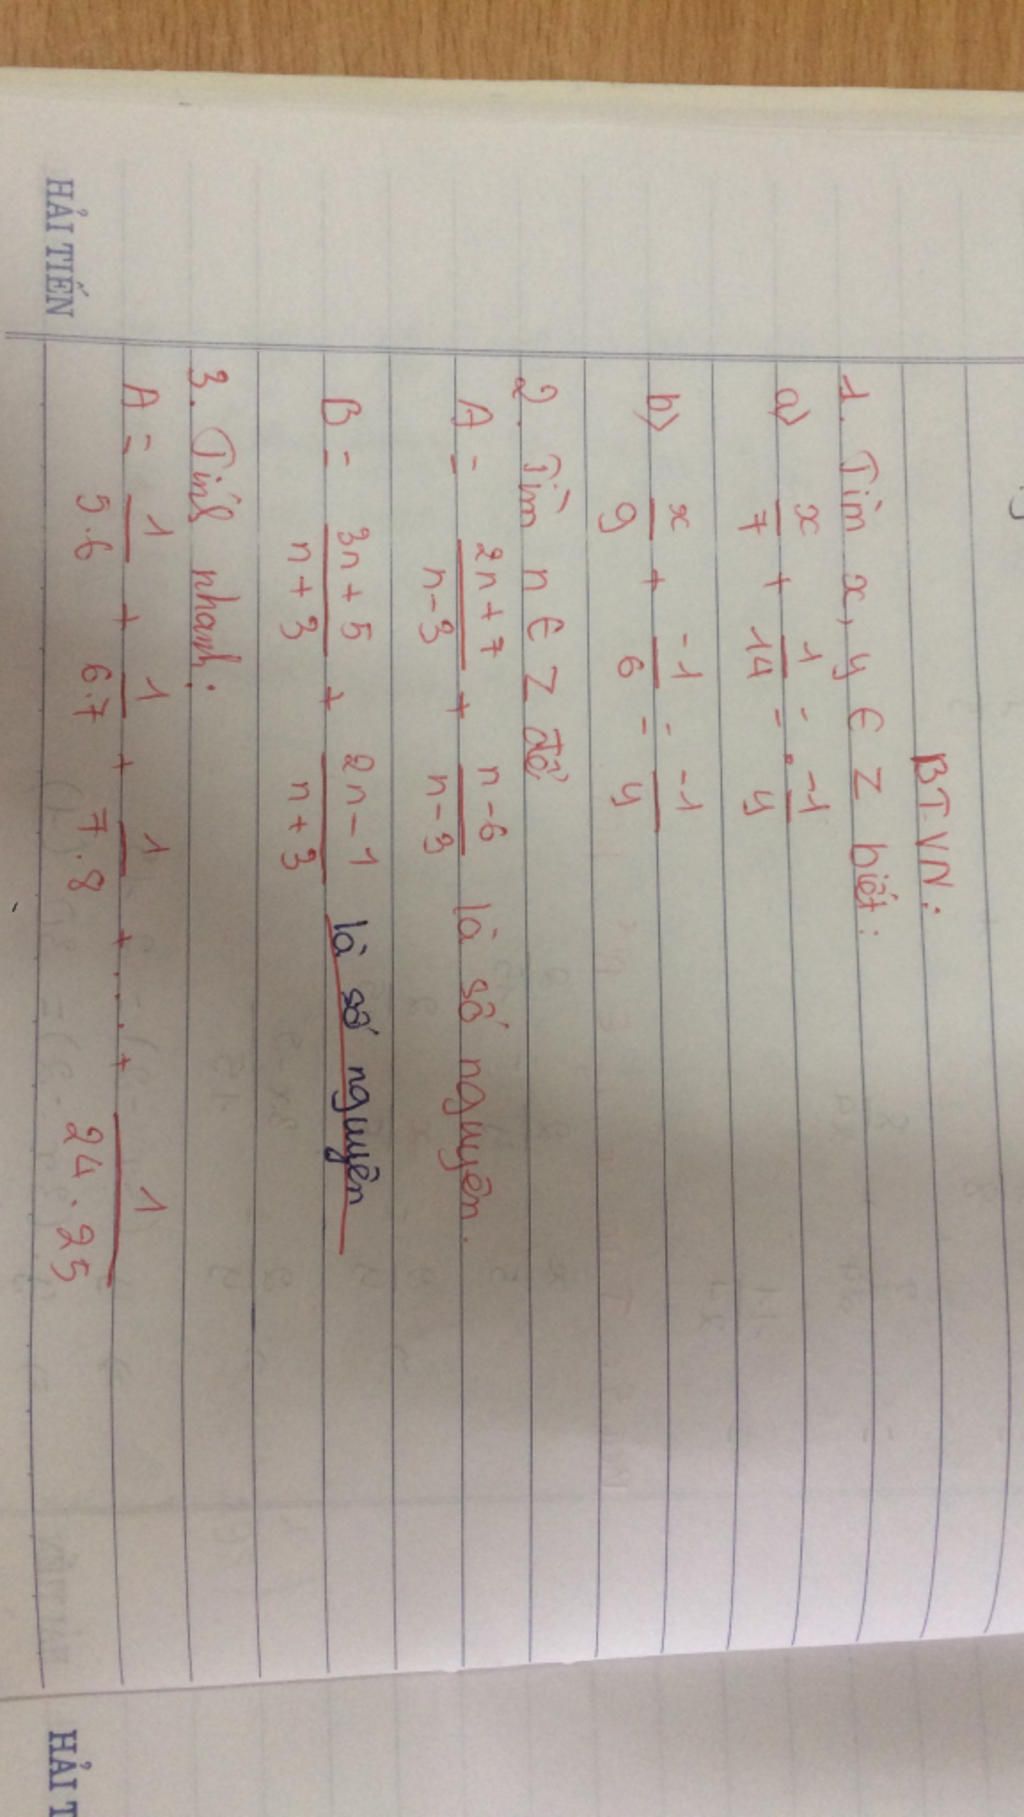 BTVN:
1. Tìm x, y ∈ Z biết:
a) x/7 + 1/14 = -1/y
b) x/9 + -1/6 = -1/y
2. Tìm n ∈ Z để
A = 2n+7/n-3 + n-6/n-3 là số nguyên.
B = 3n+5/n+3 + 2n-1/n+3 là số nguyên
3. Tính nhanh:
A = 1/5.6 + 1/6.7 + 1/7.8 + .... + 1/24.25
HẢI TIẾN
HẢI T